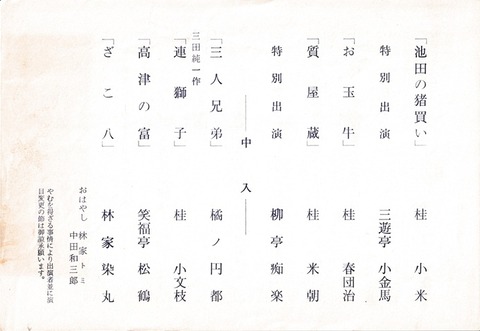 「池田の猪買い」 桂 小米
特別出演 三遊亭 小金馬
「お玉牛」 桂 春団治
「質屋蔵」 桂 米朝
特別出演 柳亭 痴楽
――中入――
「三人兄弟」 橘ノ円都
三田純一作
「連獅子」 桂 小文枝
「高津の富」 笑福亭 松鶴
「ざこ八」 林家染丸
おはやし 林家トミ
中田和三郎
やむを得ざる事情により出演者並に演
目変更の節は御諒承願います。